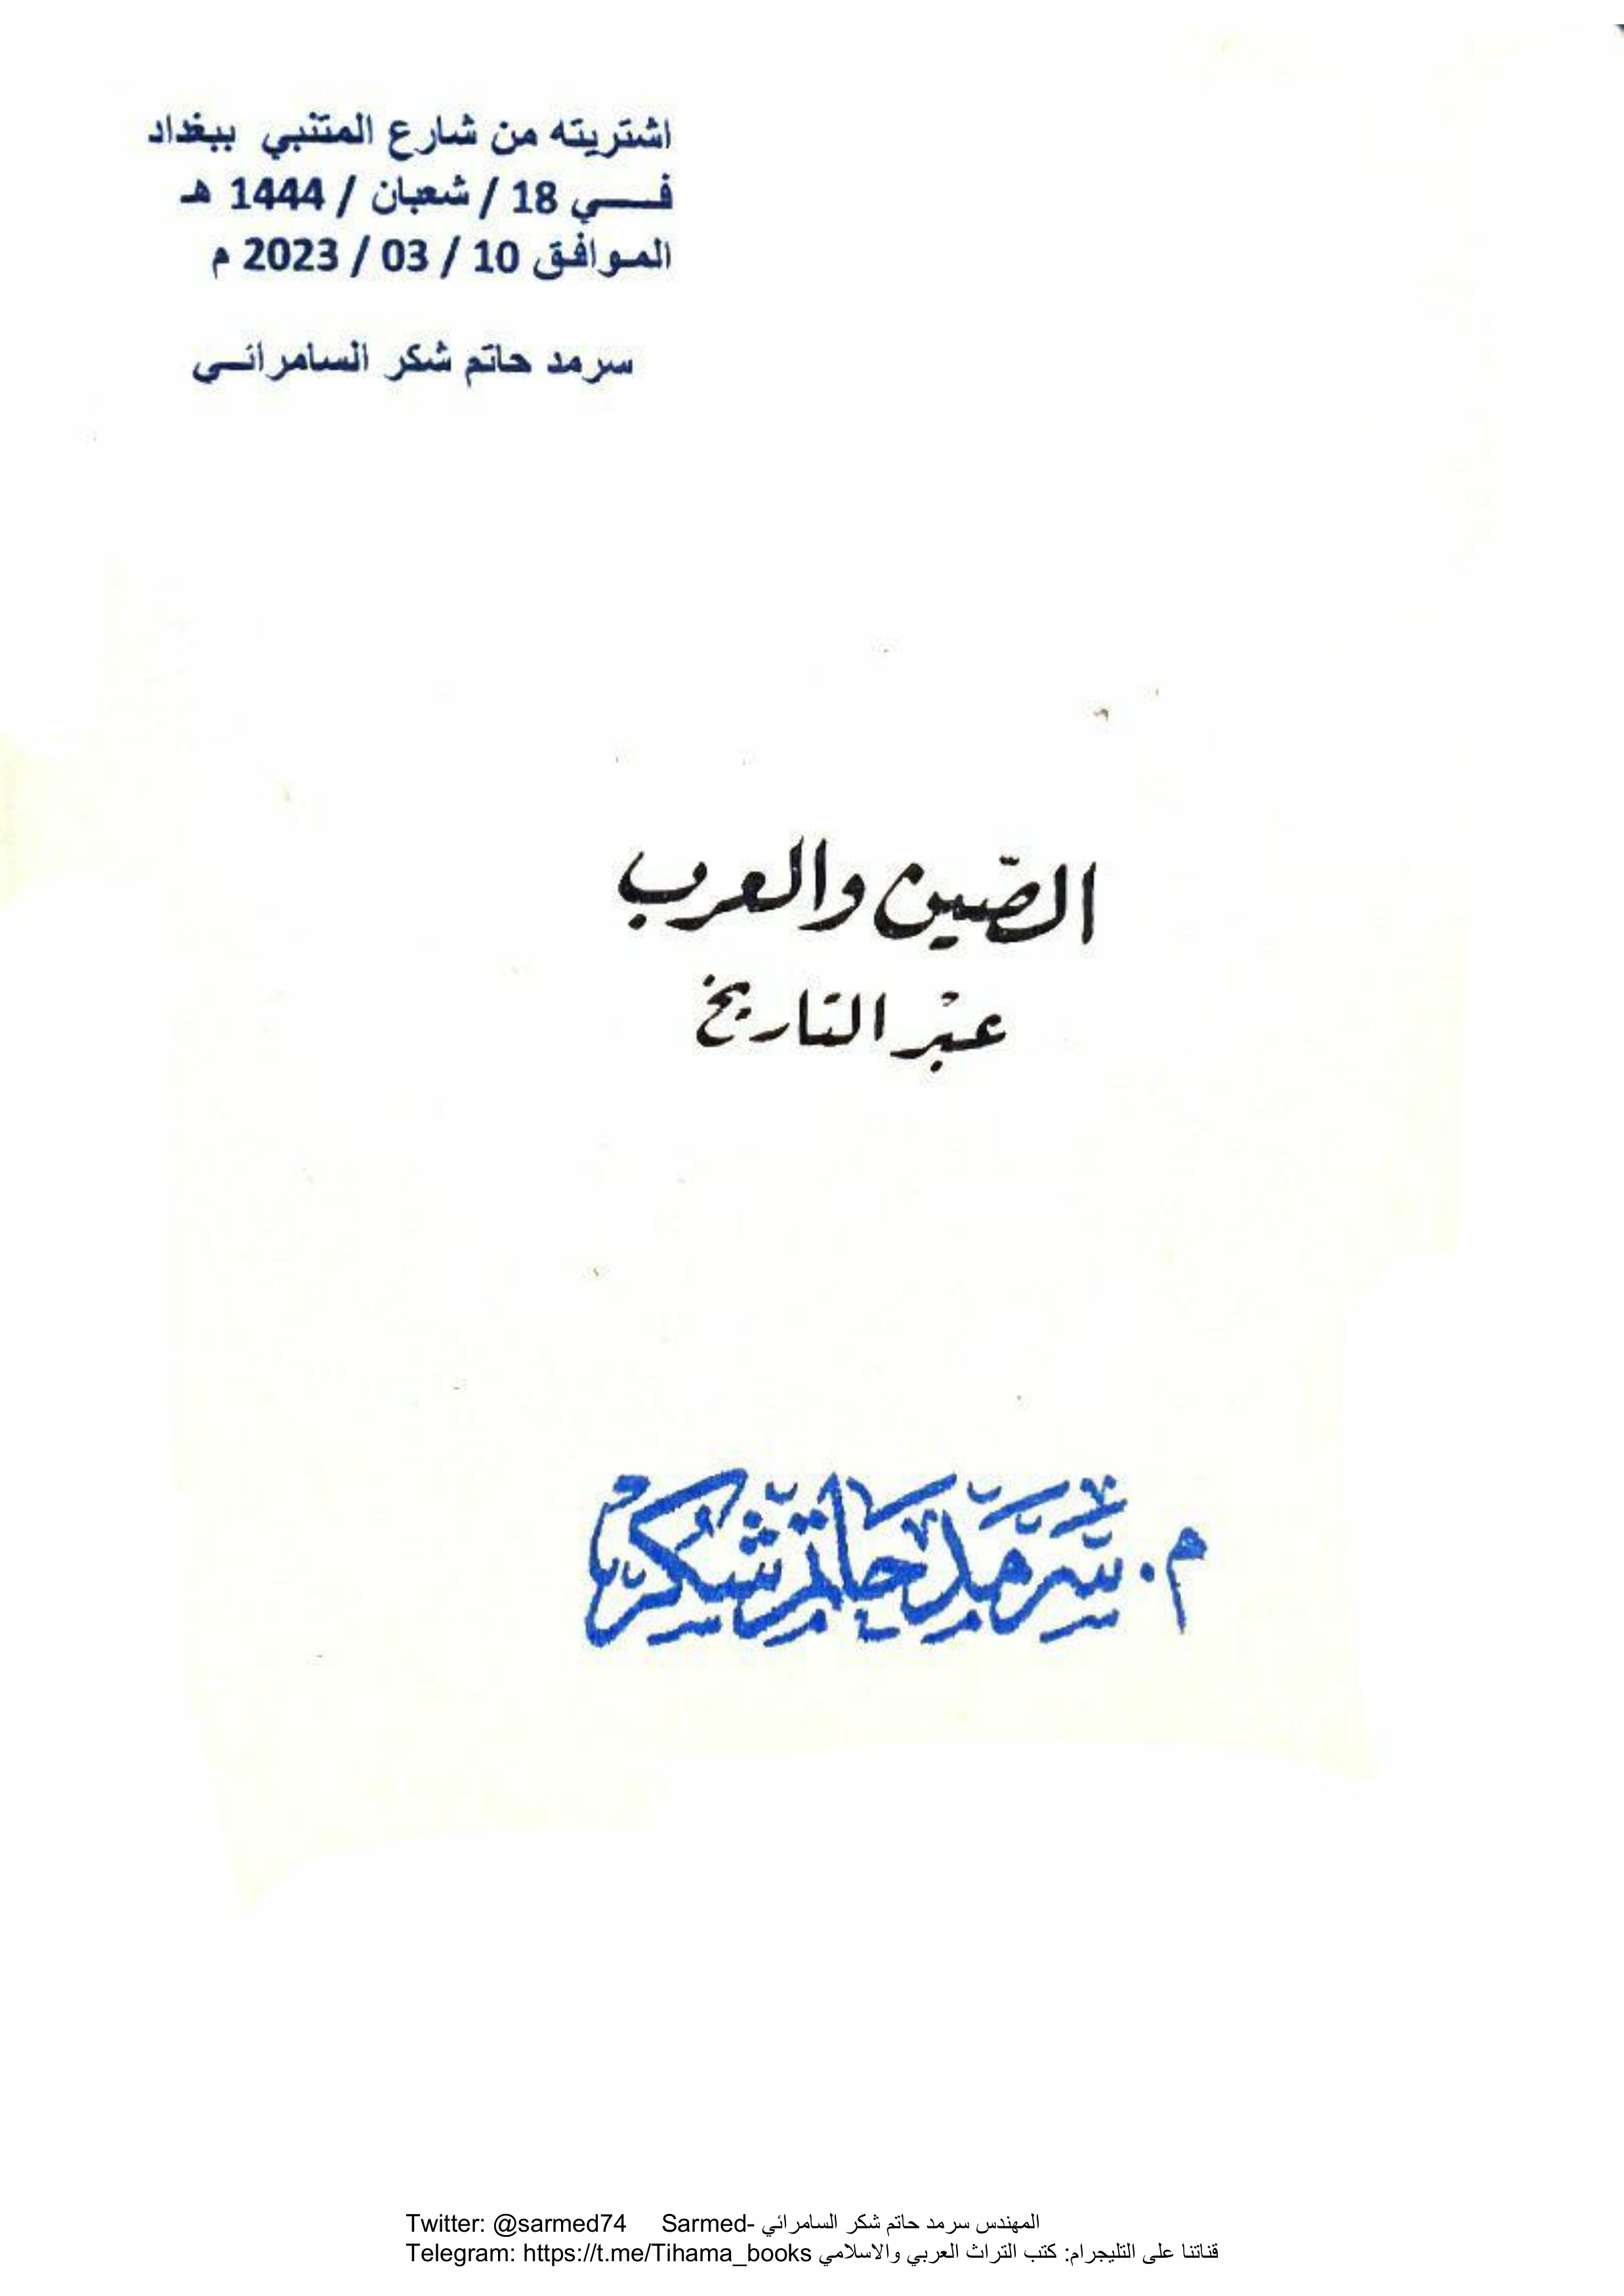 اشتريته من شارع المتنبي ببغداد
فـــــي 18 / شعبان / 1444 هـ
الموافق 10 / 03 / 2023 م
سرمد حاتم شكر السامرائـــي
الصّين والعرب
عبْر التاريخ
م. سَرمَد حَاتم شُكر
Twitter: @sarmed74 Sarmed- المهندس سرمد حاتم شكر السامرائي
Telegram: https://t.me/Tihama_books قناتنا على التليجرام: كتب التراث العربي والاسلامي